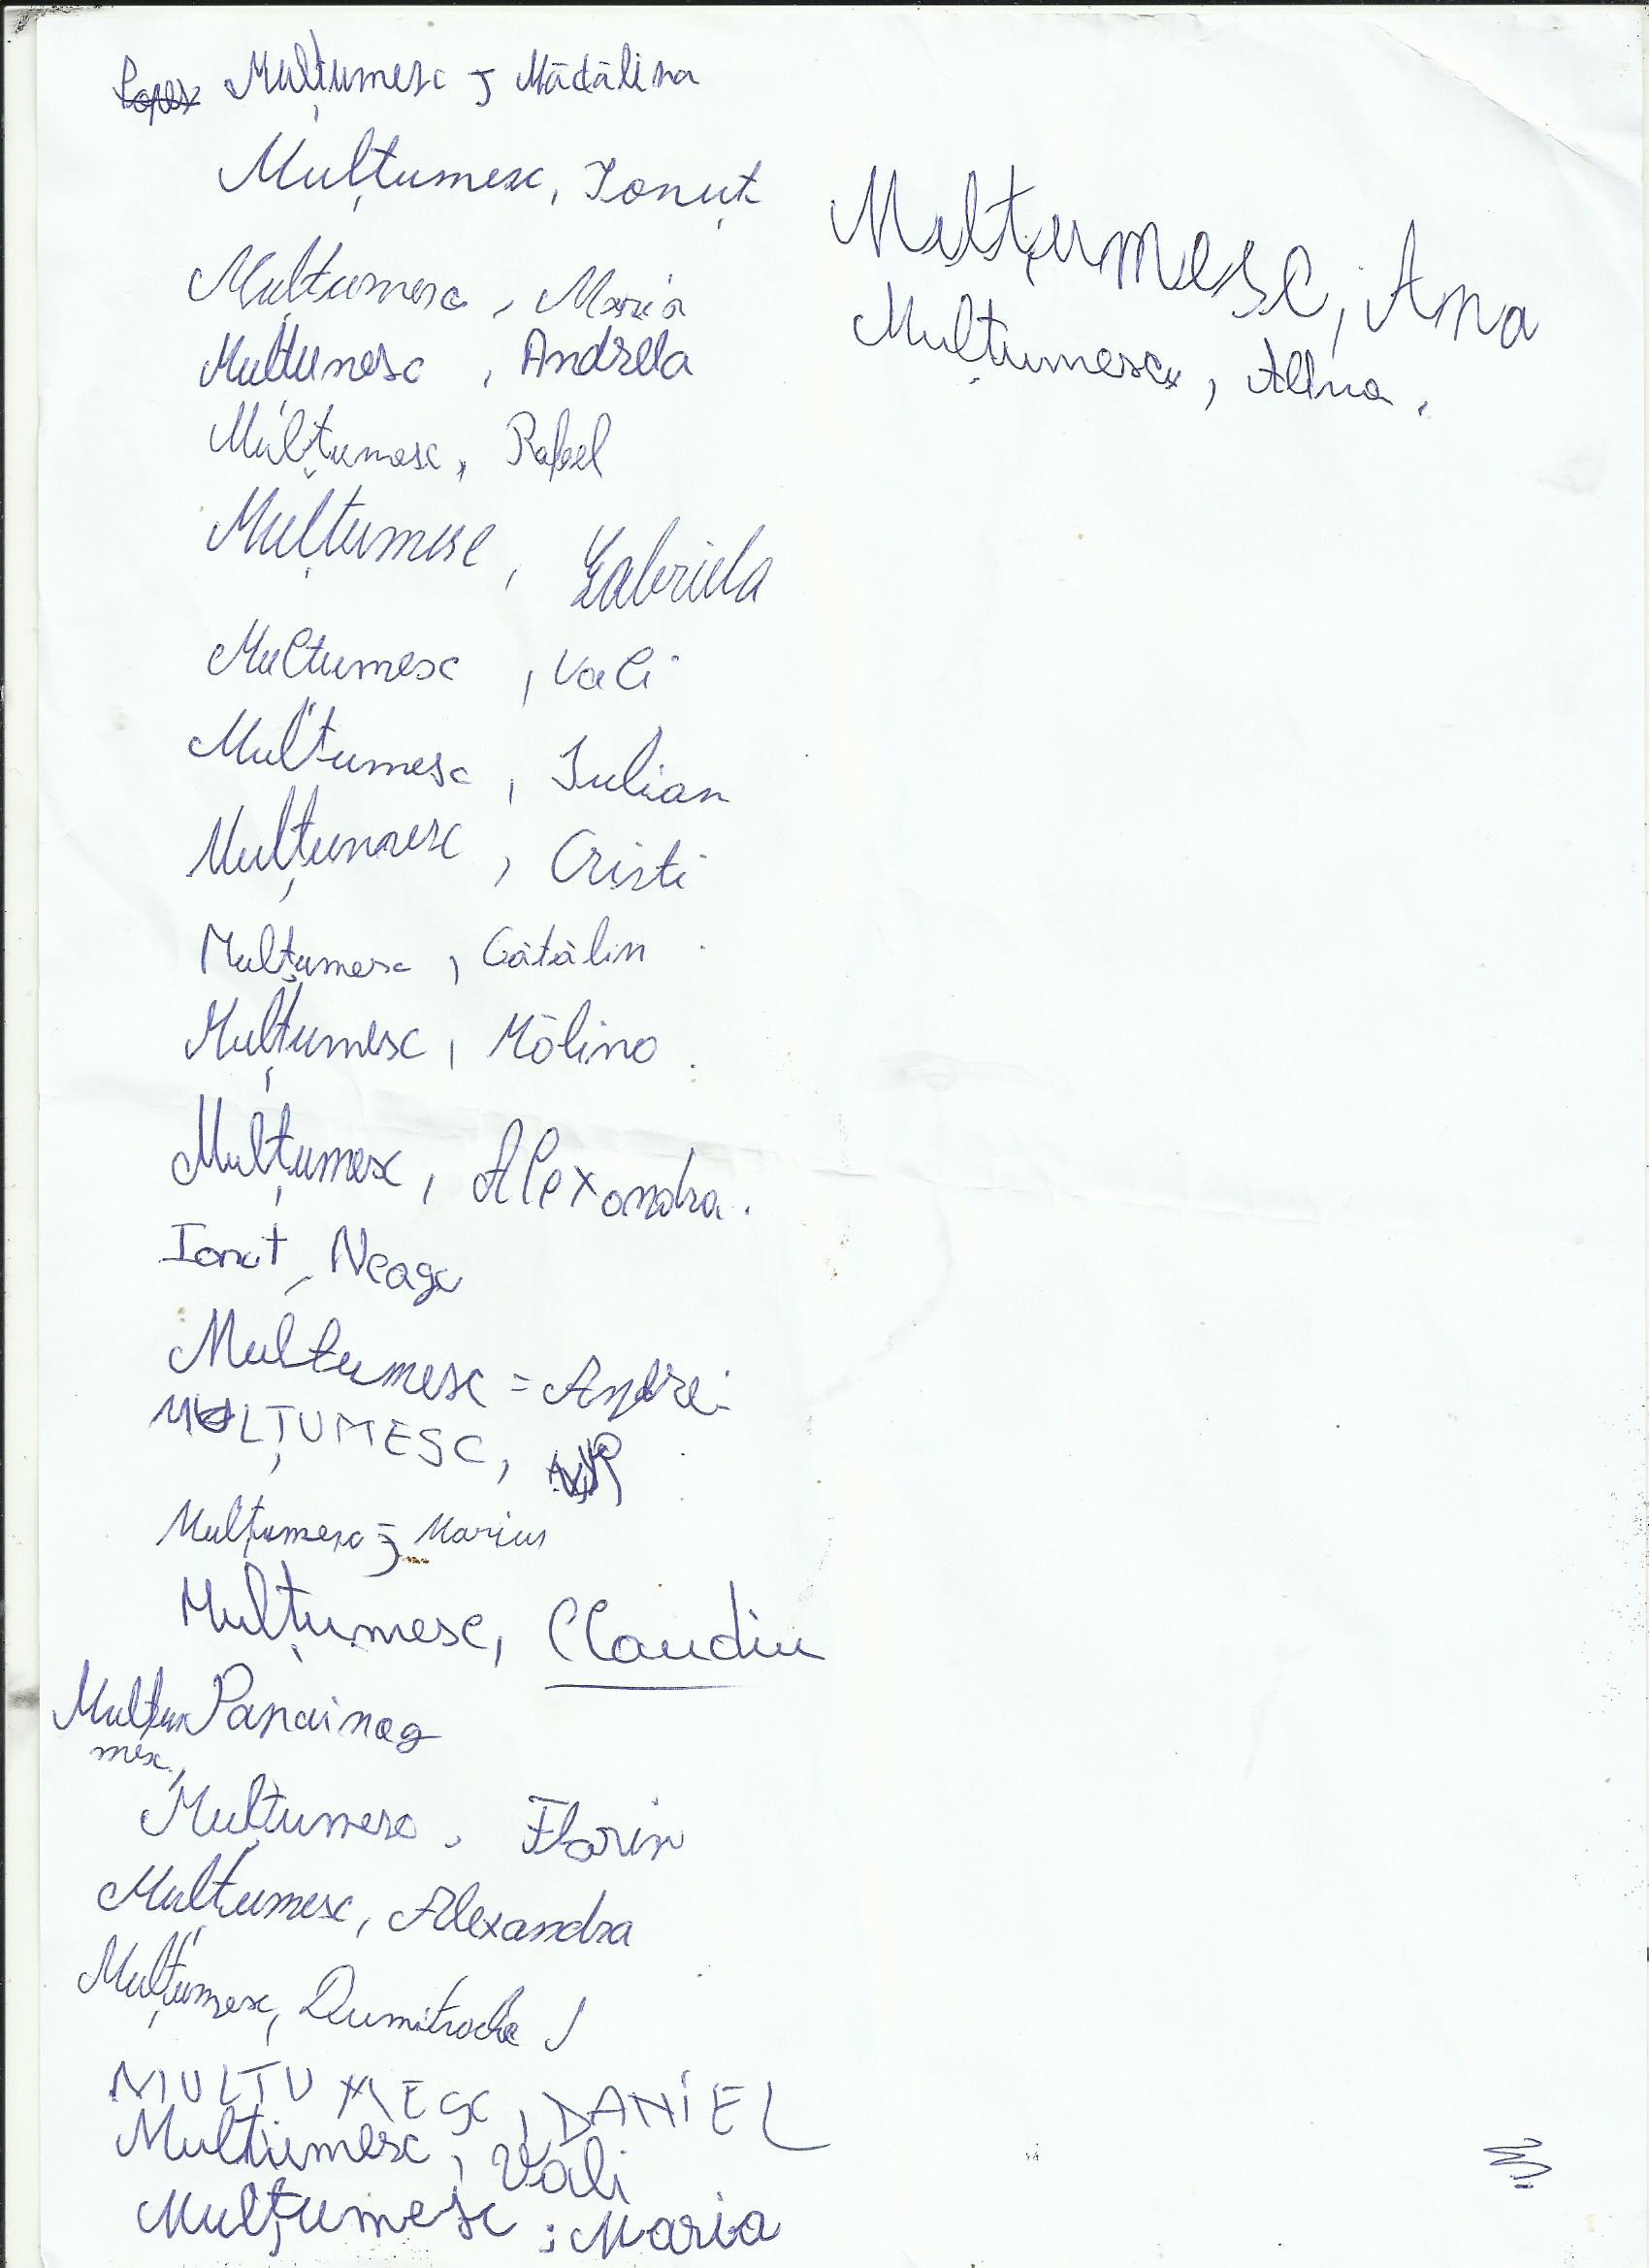 Mulțumesc, Mădălina
Mulțumesc, Ionuț
Mulțumesc, Maria
Mulțumesc, Andreea
Mulțumesc, Rafael
Mulțumesc, Gabriela
Multumesc, Vali
Multumesc, Iulian
Mulțumesc, Cristi
Mulțumesc, Cătălin
Mulțumesc, Mălina
Mulțumesc, Alexandra.
Ionut, Neagu
Multumesc = Andrei
MULȚUMESC,
Mulțumesc, Marius
Mulțumesc, Claudiu
Mulțumesc, Florin
Mulțumesc, Alexandra
Mulțumesc, Dumitrache
MULTUMESC, DANIEL
Multumesc, Vali
Mulțumesc, Maria
Mulțumesc, Ana
Mulțumesc, Alina.